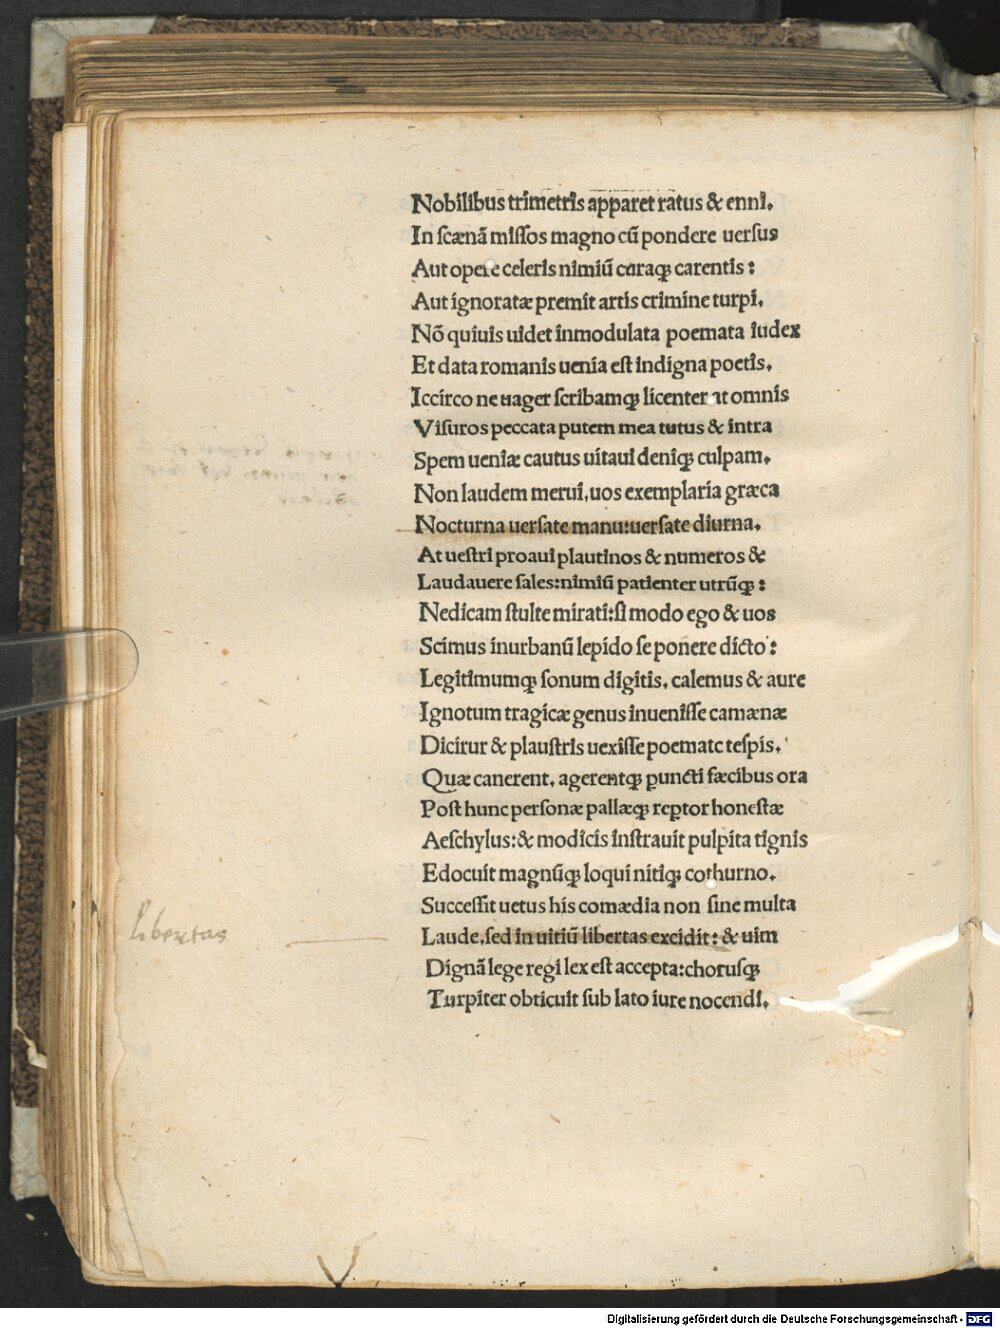 Nobilibus trimetris apparet ratus & enni.
In scænā missos magno cū pondere uersus
Aut opere celeris nimiū curaqꝫ carentis:
Aut ignoratæ premit artis crimine turpi.
Nō quiuis uidet inmodulata poemata iudex
Et data romanis uenia est indigna poetis.
Iccirco ne uager scribamqꝫ licenter ut omnis
Visuros peccata putem mea tutus & intra
Spem ueniæ cautus uitaui deniqꝫ culpam.
Non laudem merui, uos exemplaria græca
Nocturna uersate manu:uersate diurna.
At uestri proaui plautinos & numeros &
Laudauere sales:nimiū patienter utrūqꝫ:
Nedicam stulte mirati:si modo ego & uos
Scimus inurbanū lepido se ponere dicto:
Legitimumqꝫ sonum digitis. calemus & aure
Ignotum tragicæ genus inuenisse camænæ
Dicirur & plaustris uexisse poemate tespis.
Quæ canerent. agerentqꝫ ꝑuncti fæcibus ora
Post hunc personæ pallæqꝫ reptor honestæ
Aeschylus:& modicis instrauit pulpita tignis
Edocuit magnūqꝫ loqui nitiqꝫ cothurno.
Successit uetus his comædia non sine multa
libertas
Laude,sed in uitiū libertas excidit: & uim
Dignā lege regi lex est accepta:chorusqꝫ
Turpiter obticuit sub lato iure nocendi.
Digitalisierung gefördert durch die Deutsche Forschungsgemeinschaft - DFG